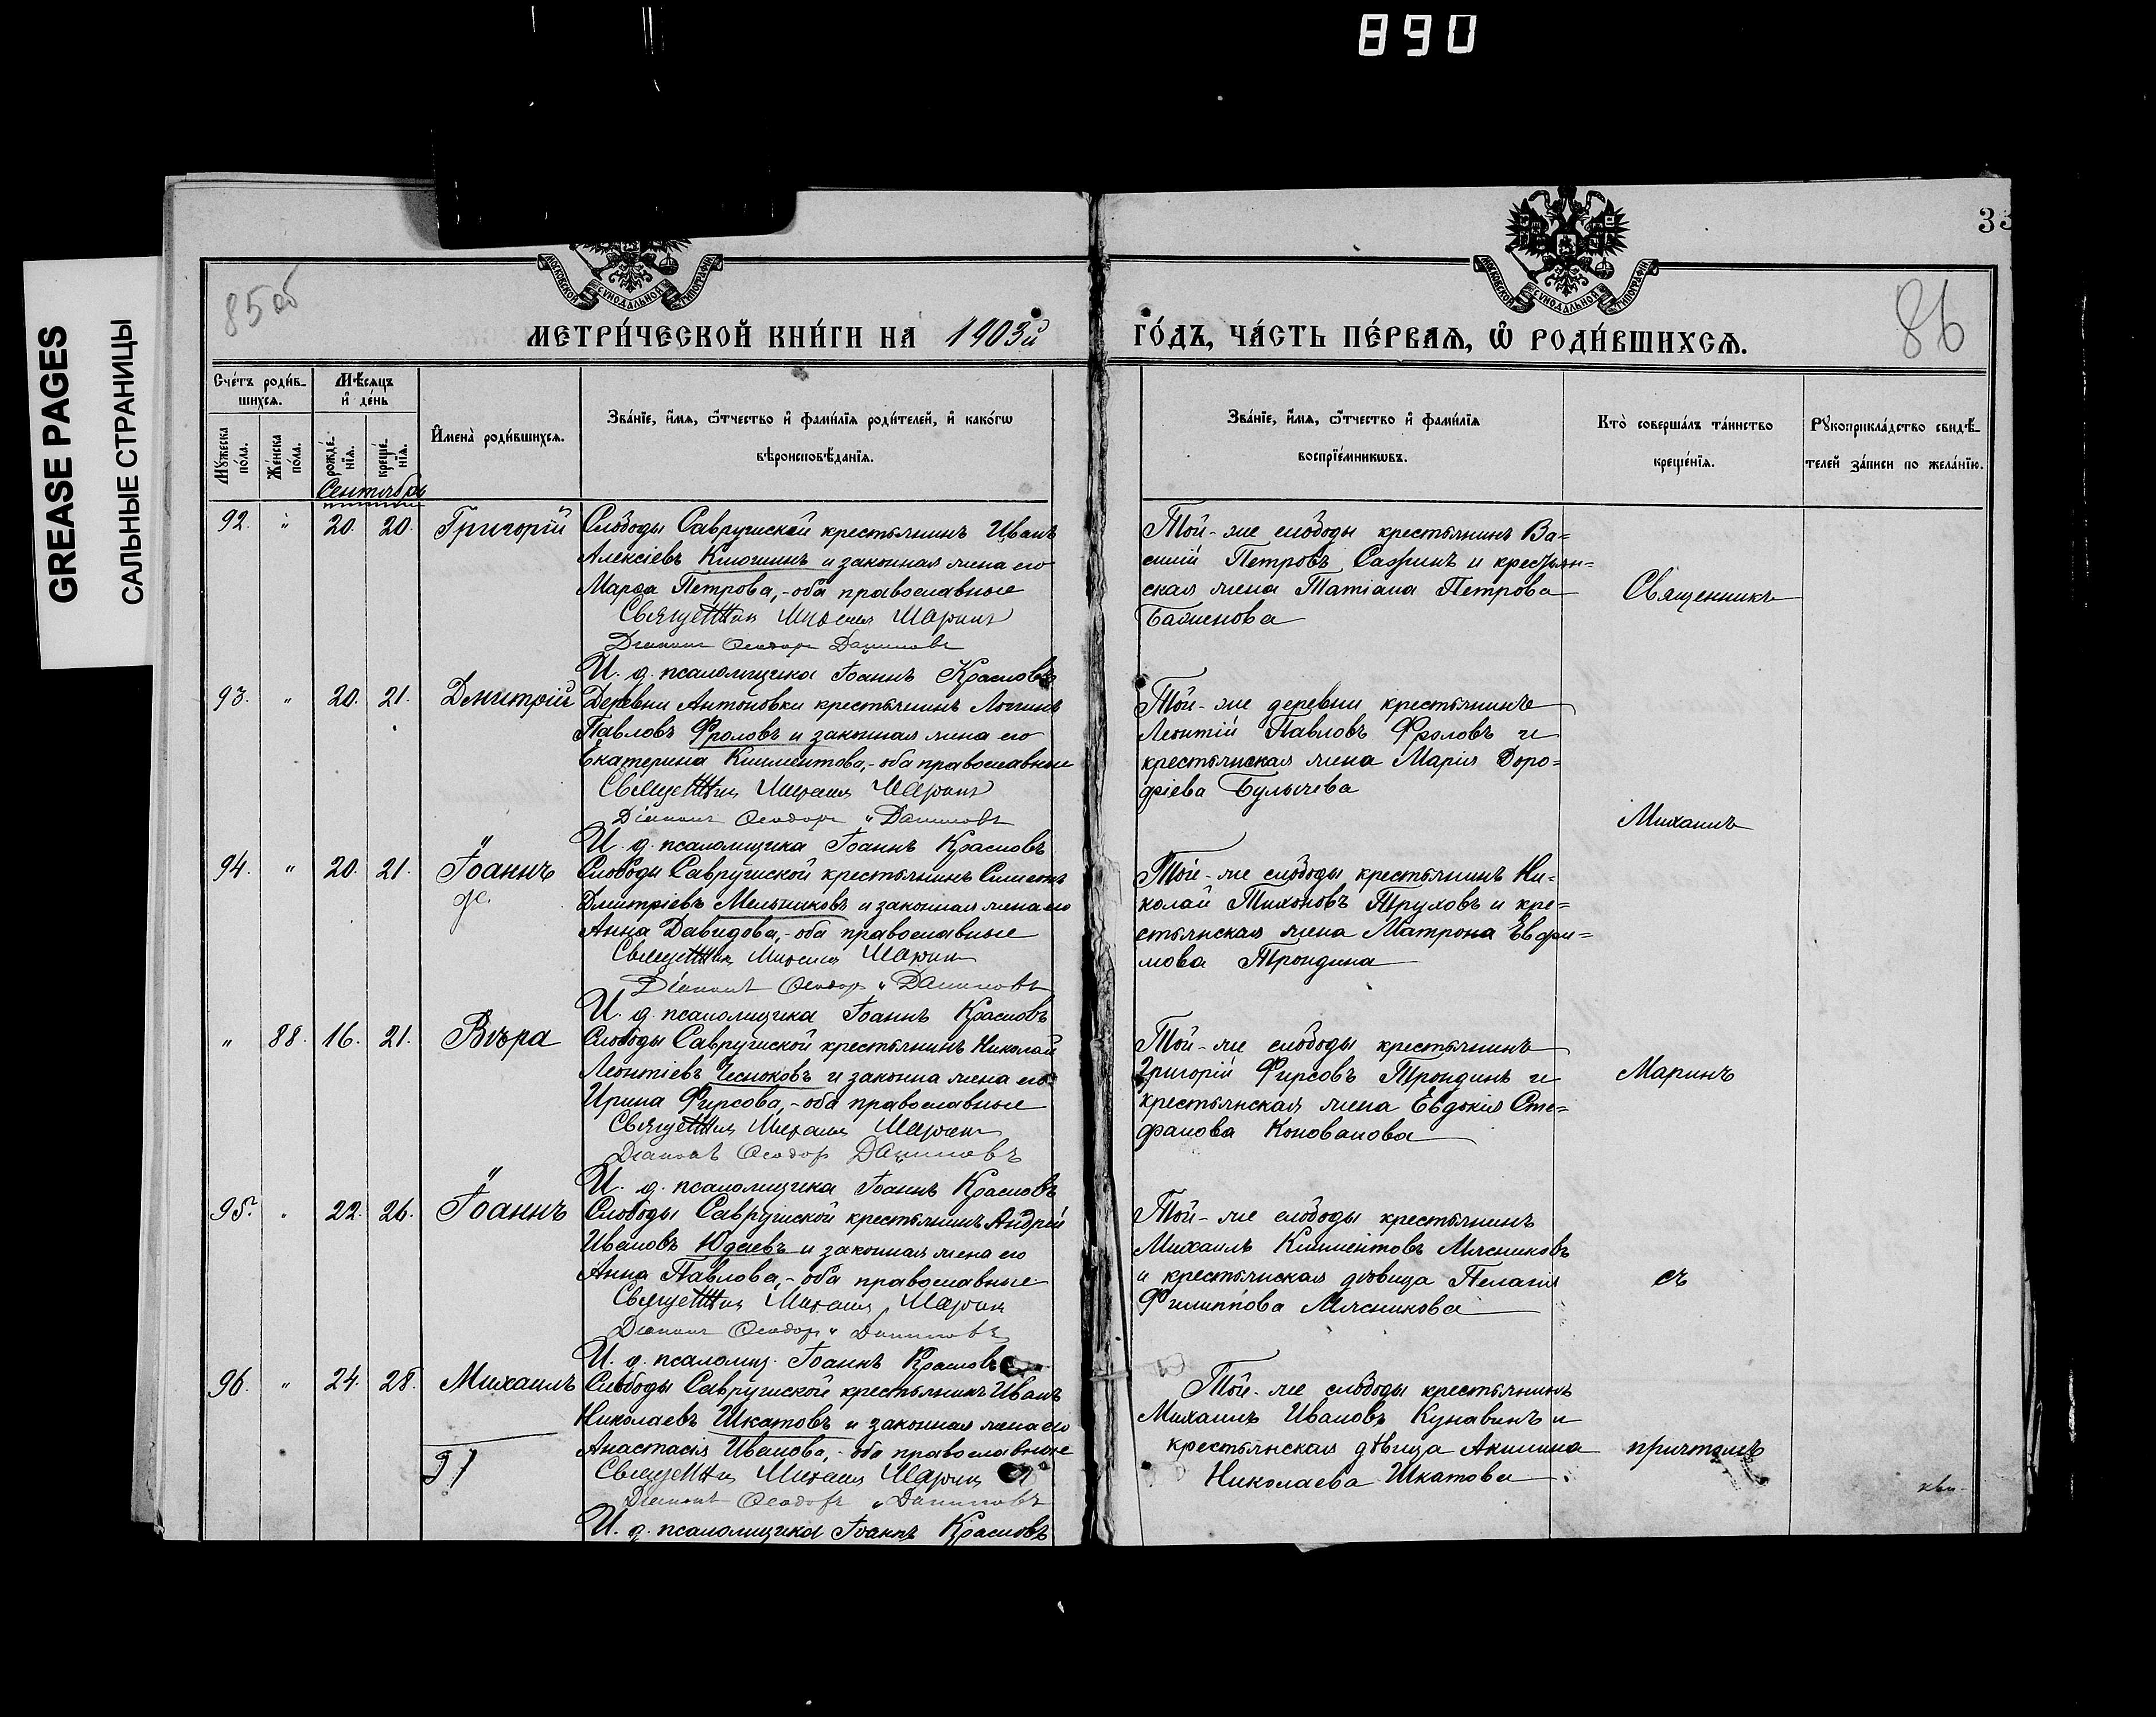 890
GREASE PAGES
САЛЬНЫЕ СТРАНИЦЫ
33
85об
86
МОСКОВСКОЙ СѴНОДАЛЬНОЙ ТИПОГРАФІИ
МОСКОВСКОЙ СѴНОДАЛЬНОЙ ТИПОГРАФІИ
МЕТРИ́ЧЕСКОЙ КНИ́ГИ НА 1903й
ГО́ДЪ, ЧА́СТЬ ПЕ́РВАѦ, Ѡ҆ РОДИ́ВШИХСѦ.
Сче́тъ роди́в-
шихсѧ.
Мꙋ́жеска
по́ла.
Же́нска
по́ла.
Мѣ́сѧцъ
и҆ де́нь
рожде́-
нїѧ.
креще́-
нїѧ.
И҆мена̀ роди́вшихсѧ.
Зва́нїе, и҆́мѧ, ѻ҆́тчество и҆ фами́лїѧ роди́телей, и҆ како́гѡ
вѣроисповѣ́данїѧ.
Зва́нїе, и҆́мѧ, ѻ҆́тчество и҆ фами́лїѧ
воспрїе́мникѡвъ.
Кто̀ соверша́лъ та́инство
креще́нїѧ.
Рꙋкоприкла́дство свидѣ́-
телей за́писи по жела́нїю.
Сентябрь
92. " 20. 20. Григорій
Слободы Саврушской крестьянинъ Иванъ
Алексіевъ Клюшинъ и законная жена его
Марѳа Петрова,- оба православные
Священник Михаил Марин
Діаконъ Ѳеодоръ Даниловъ
И. д. псаломщика Іоаннъ Красновъ
Той-же слободы крестьянинъ Ва=
силій Петровъ Сафинъ и крестьян=
ская жена Татіана Петрова
93. " 20. 21. Дмитрій
Деревни Антоновки крестьянинъ Логинъ
Павловъ Фроловъ и законная жена его
Екатерина Климентова,- оба православные
Священник Михаил Марин
Діаконъ Ѳеодоръ Даниловъ
И. д. псаломщика Іоаннъ Красновъ
Той-же деревни крестьянинъ
Леонтій Павловъ Фроловъ и
крестьянская жена Марія Доро=
фіева Булычева
94. " 20. 21. Іоаннъ
Слободы Саврушской крестьянинъ Симеонъ
Дмитріевъ Мельниковъ и законная жена его
Анна Давидова,- оба православные
Священник Михаил Марин
Діаконъ Ѳеодоръ Даниловъ
И. д. псаломщика Іоаннъ Красновъ
Той-же слободы крестьянинъ Ни=
колай Тихоновъ Труховъ и кре=
стьянская жена Матрона Евфи=
мова Трондина
" 88. 16. 21. Вѣра
Слободы Саврушской крестьянинъ Николай
Леонтіевъ Чесноковъ и законна жена его
Ирина Фирсова,- оба православные
Священник Михаил Марин
Діаконъ Ѳеодоръ Даниловъ
И. д. псаломщика Іоаннъ Красновъ
Той-же слободы крестьянинъ
Григорій Фирсовъ Трондинъ и
крестьянская жена Евдокія Сте=
фанова Коновалова
95. " 22. 26. Іоаннъ
Слободы Саврушской крестьянинъ Андрей
Ивановъ Юдаевъ и законная жена его
Анна Павлова,- оба православные
Священник Михаил Марин
Діаконъ Ѳеодоръ Даниловъ
И. д. псаломщ. Іоаннъ Красновъ
Той-же слободы крестьянинъ
Михаилъ Климентовъ Мясниковъ
и крестьянская дѣвица Пелагія
Филиппова Мясникова
96. " 24. 28. Михаилъ
Слободы Саврушской крестьянинъ Иванъ
Николаевъ Шкатовъ и законная жена его
Анастасія Иванова,- оба православные
Священник Михаил Марин
Діаконъ Ѳеодоръ Даниловъ
И. д. псаломщика Іоаннъ Красновъ
Той-же слободы крестьянинъ
Михаилъ Ивановъ Кунавинъ и
крестьянская дѣвица Акилина
Николаева Шкатова
Священникъ
Михаилъ
Маринъ
съ
причтомъ